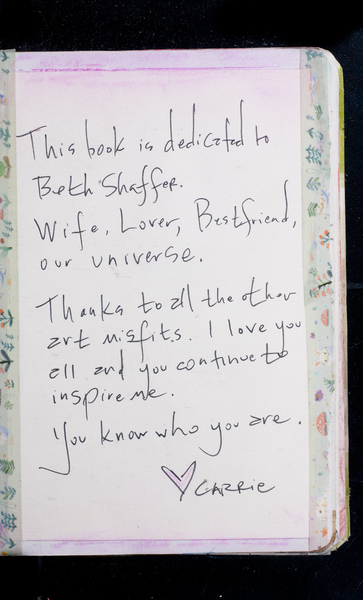 This book is dedicated to
Beth Shaffer.
Wife, Lover, Bestfriend,
our universe.
Thanks to all the other
art misfits. I love you
all and you continue to
inspire me.
You know who you are.
CARRIE